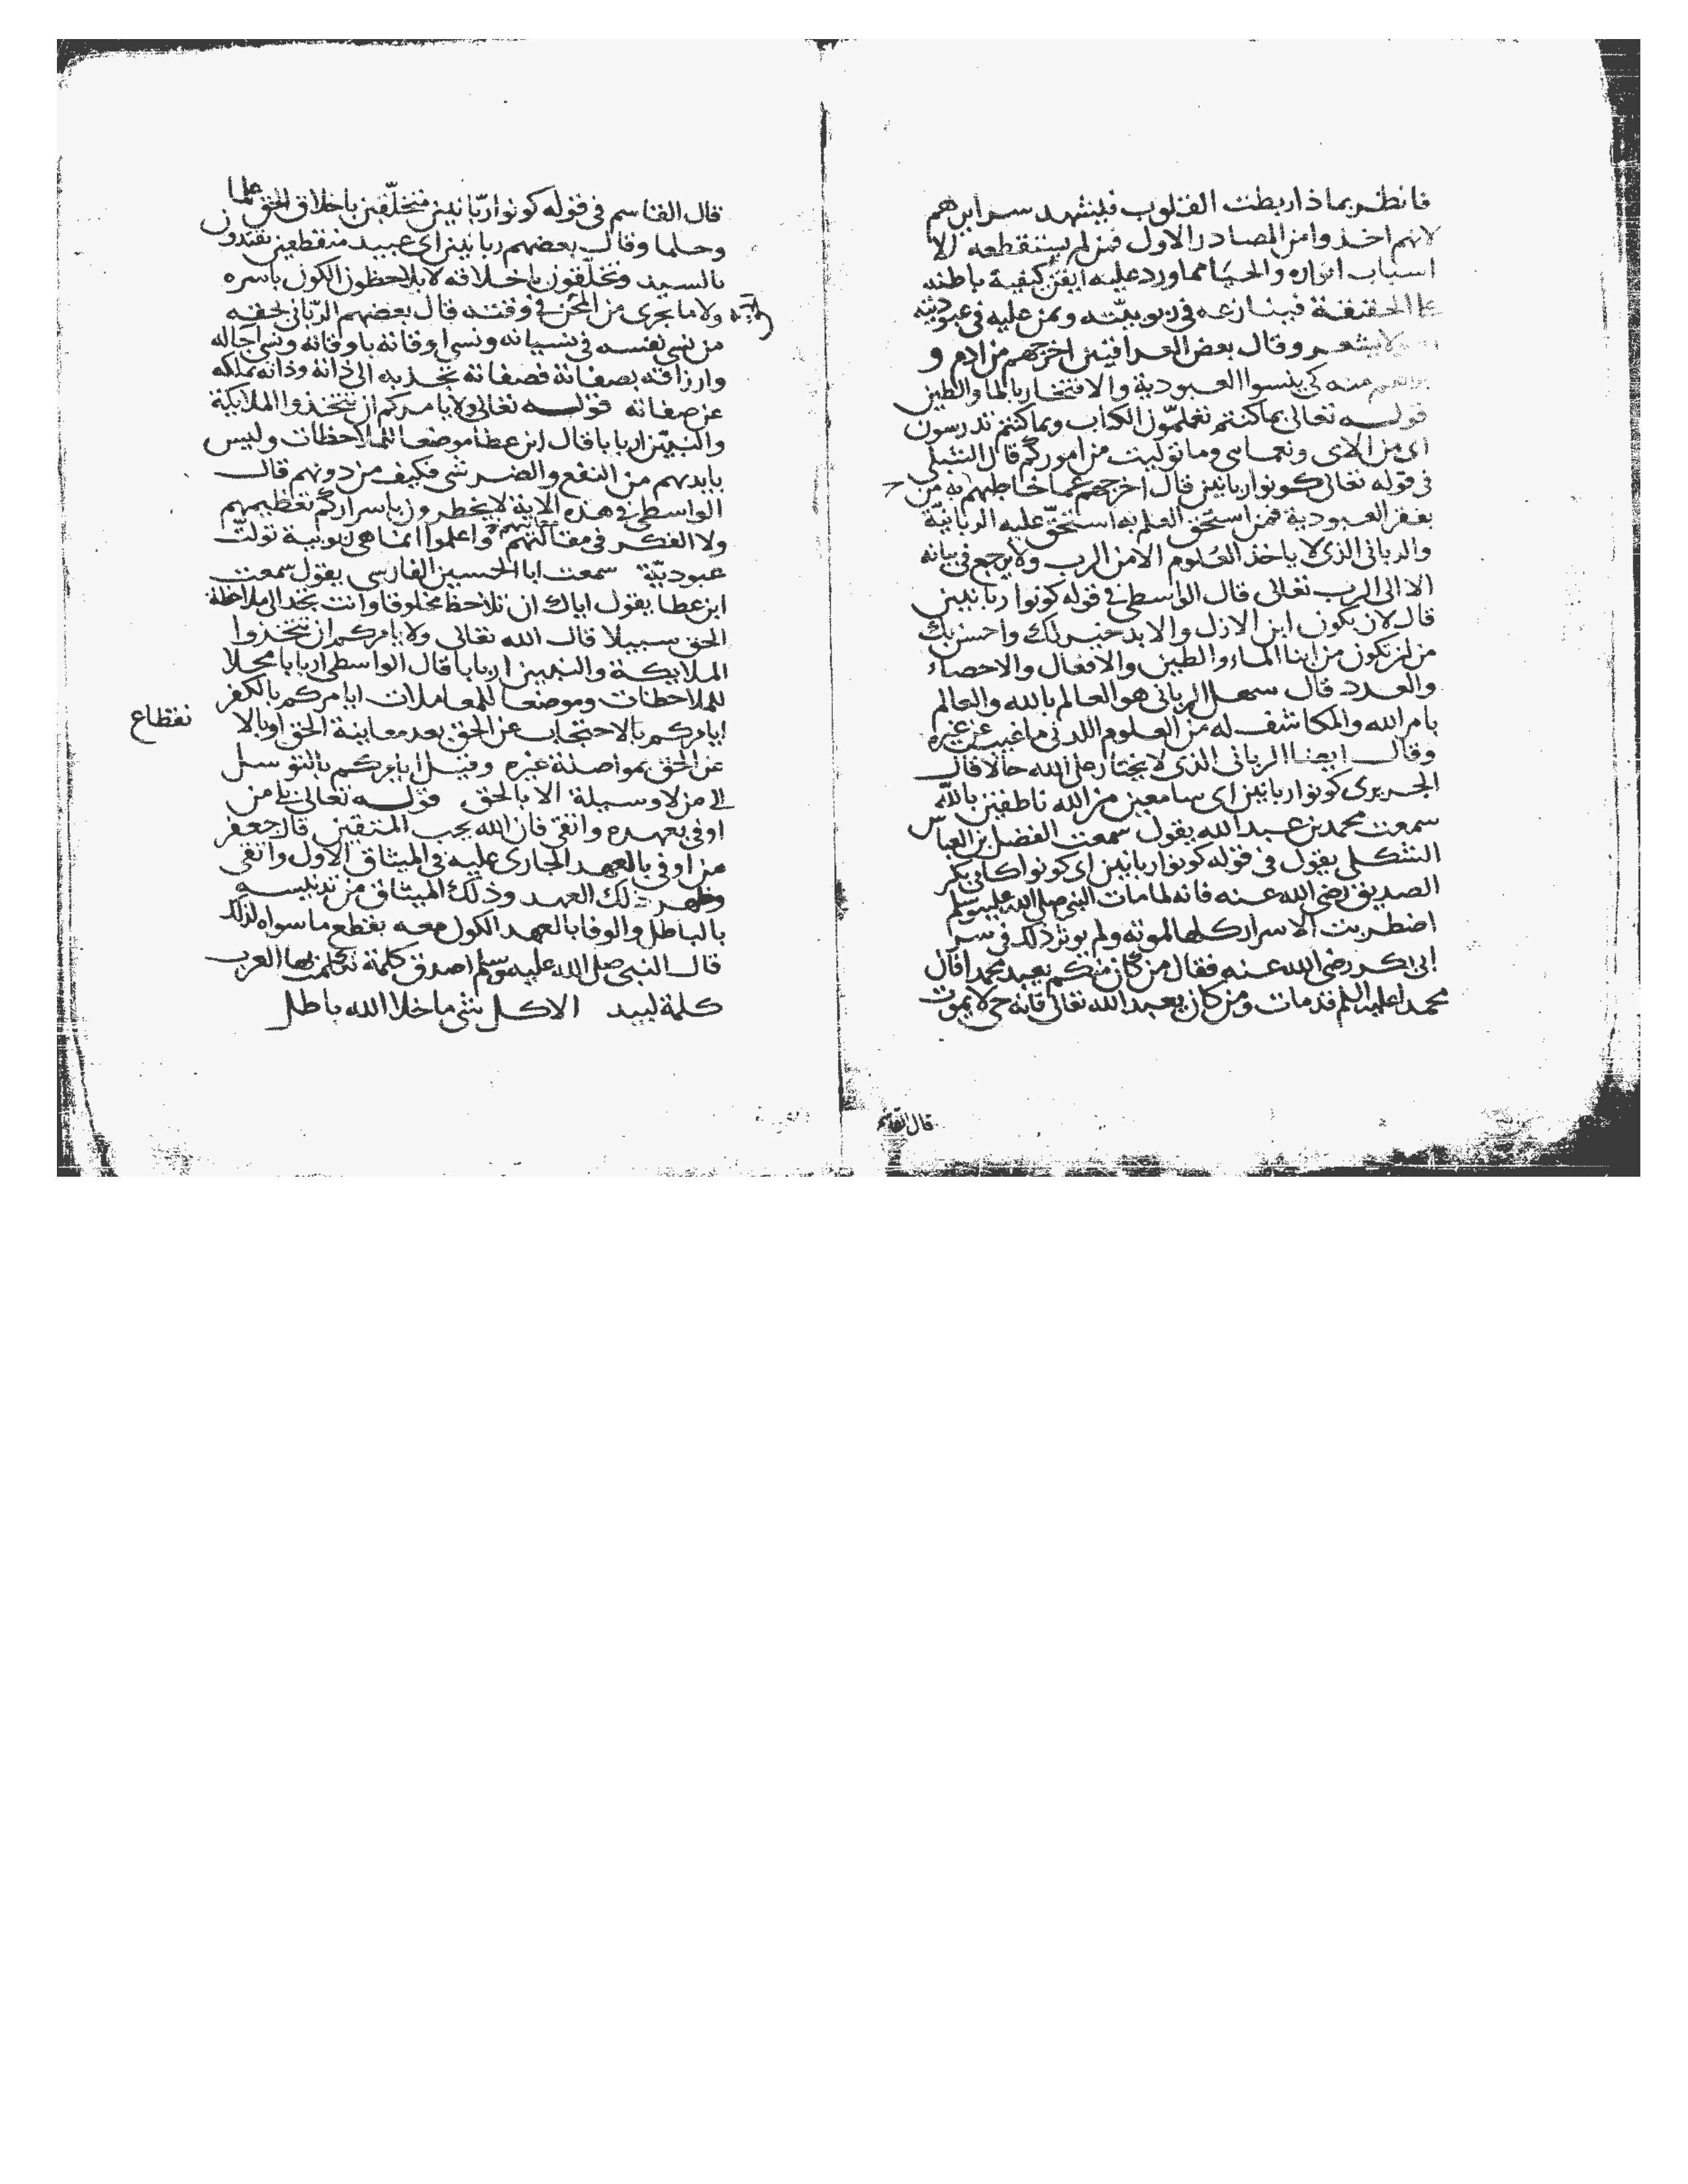 فانظر بماذا ربطت القلوب فيشهد سراين هم
لانهم اخذوا من المصادر الاول فمن لم يستقطعه الا
اسباب انواره والحيا مما ورد عليه ايقن كيفية باطنه
الحقيقة فينازعه فى ربوبيته ويمن عليه فى عبوديته
لا يشعر وقال بعض العراقيين اخرجهم من ادم و
منه كى ينسوا العبودية والافتخار بالما والطين
قوله تعالى بما كنتم تعلمون الكتاب وبما كنتم تدرسون
اى من الاى ونعماى وما توليت من اموركم قال الشبلى
فى قوله تعالى كونوا ربانيين قال اخرجهم عما خاطبهم به من
بفقر العبودية فمن استحق العلم به استحق عليه الربانية
والربانى الذى لا ياخذ العلوم الا من الرب ولا يرجع فى بيانه
الا الى الرب تعالى قال الواسطى فى قوله كونوا ربانيين
قال لان يكون ابن الازل والابد خير لك واحسن بك
من ان تكون من ابنا الماء والطين والافعال والاحصاء
والعدد قال سهل الربانى هو العالم بالله والعالم
بامر الله والمكاشف له من العلوم اللدنى ما غيب عن غيره
وقال ايضا الربانى الذى لا يختار على الله حالا قال
الجريرى كونوا ربانيين اى سامعين من الله ناطقين بالله
سمعت محمد بن عبد الله يقول سمعت الفضل بن العباس
الشكلى يقول فى قوله كونوا ربانيين اى كونوا كابى بكر
الصديق رضى الله عنه فانه لما مات النبى صلى الله عليه وسلم
اضطربت الاسرار كلها لموته ولم يوثر ذلك فى سر
ابى بكر رضى الله عنه فقال من كان منكم يعبد محمدا فان
محمدا عليه السلم قد مات ومن كان يعبد الله تعالى فانه حى لا يموت
قال القاسم
قال القاسم فى قوله كونوا ربانيين متخلقين باخلاق الحق علما
وحلما وقال بعضهم ربانيين اى عبيد منقطعين يقتدون
بالسيد وتخلقون باخلاقه لا يلاحظون الكون باسره
ولا ما يجرى من المحن فى وقته قال بعضهم الربانى لحقه
من نسى نفسه فى نسيانه ونسى اوقاته باوقاته ونسى اجاله
وارزاقه بصفاته فصفاته تجذبه الى ذاته وذاته تملكه
عن صفاته قوله تعالى ولا يامركم ان تتخذوا الملايكة
والنبيين اربابا قال ابن عطا موضعا للملاحظات وليس
بايديهم من النفع والضر شى فكيف من دونهم قال
الواسطى فى هذه الاية لا يخطرون باسراركم تعظيمهم
ولا الفكر فى مقالتهم واعلموا انما هى ربوبية تولت
عبودية سمعت ابا الحسين الفارسى يقول سمعت
ابن عطا يقول اياك ان تلاحظ مخلوقا وانت تجد الى ملاحظة
الحق سبيلا قال الله تعالى ولا يامركم ان تتخذوا
الملايكة والنبيين اربابا قال الواسطى اربابا محلا
للملاحظات وموضعا للمعاملات ايامركم بالكفر
ايامركم بالاحتجاب عن الحق بعد معاينة الحق او بالا
نقطاع
عن الحق بمواصلة غيره وقيل ايامركم بالتوسل
الى من لا وسيلة الا بالحق قوله تعالى بلى من
اوفى بعهده واتقى فان الله يحب المتقين قال جعفر
من اوفى بالعهد الجارى عليه فى الميثاق الاول واتقى
وطهر ذلك العهد وذلك الميثاق من تدنيسه
بالباطل والوفا بالعهد الكون معه بقطع ما سواه لذلك
قال النبى صلى الله عليه وسلم اصدق كلمة تكلمت بها العرب
كلمة لبيد الا كل شى ما خلا الله باطل